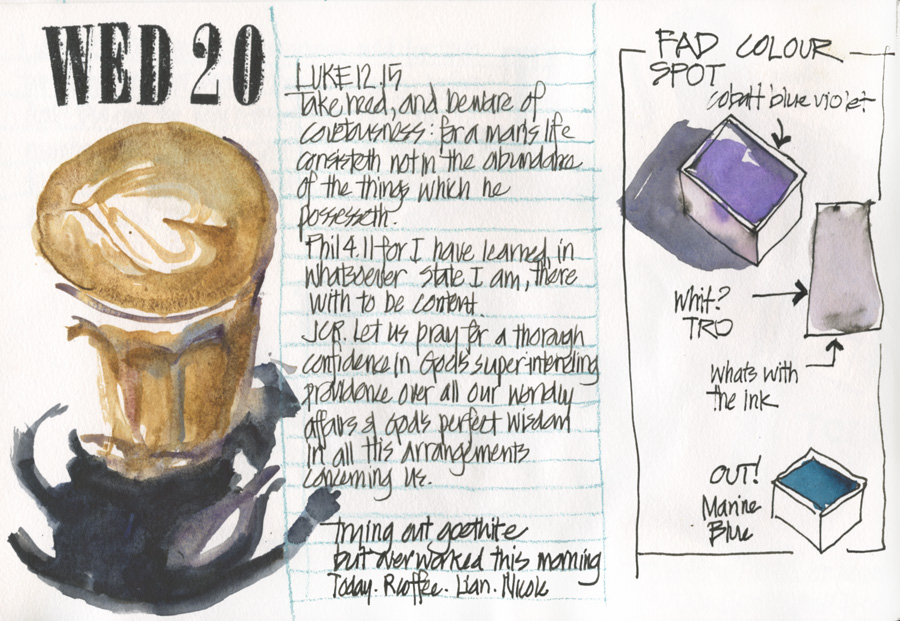 WED 20
LUKE 12.15
Take heed, and beware of
covetousness: for a man's life
consisteth not in the abundance
of the things which he
possesseth.
Phil 4.11 for I have learned, in
whatsoever state I am, there
with to be content.
JCR. Let us pray for a thorough
confidence in God's superintending
providence over all our worldly
affairs & God's perfect wisdom
in all this arrangements
concerning us.
trying out goethite
but overworked this morning
Today. Rcoffee. Lian. Nicole
FAD COLOUR
SPOT
cobalt blue violet
Whit?
TRO
whats with
the ink
OUT!
Marine
Blue